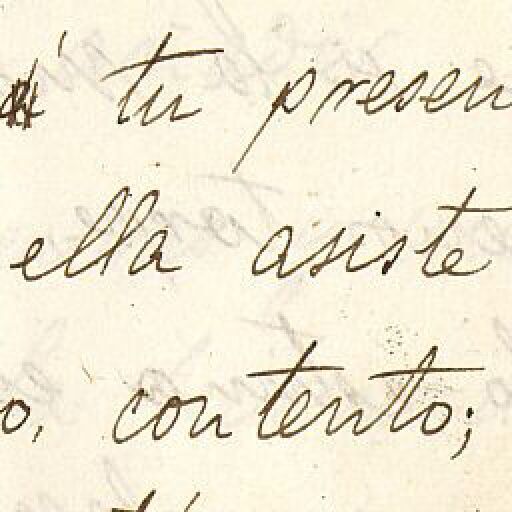 tu presen
ella asiste
o, contento;